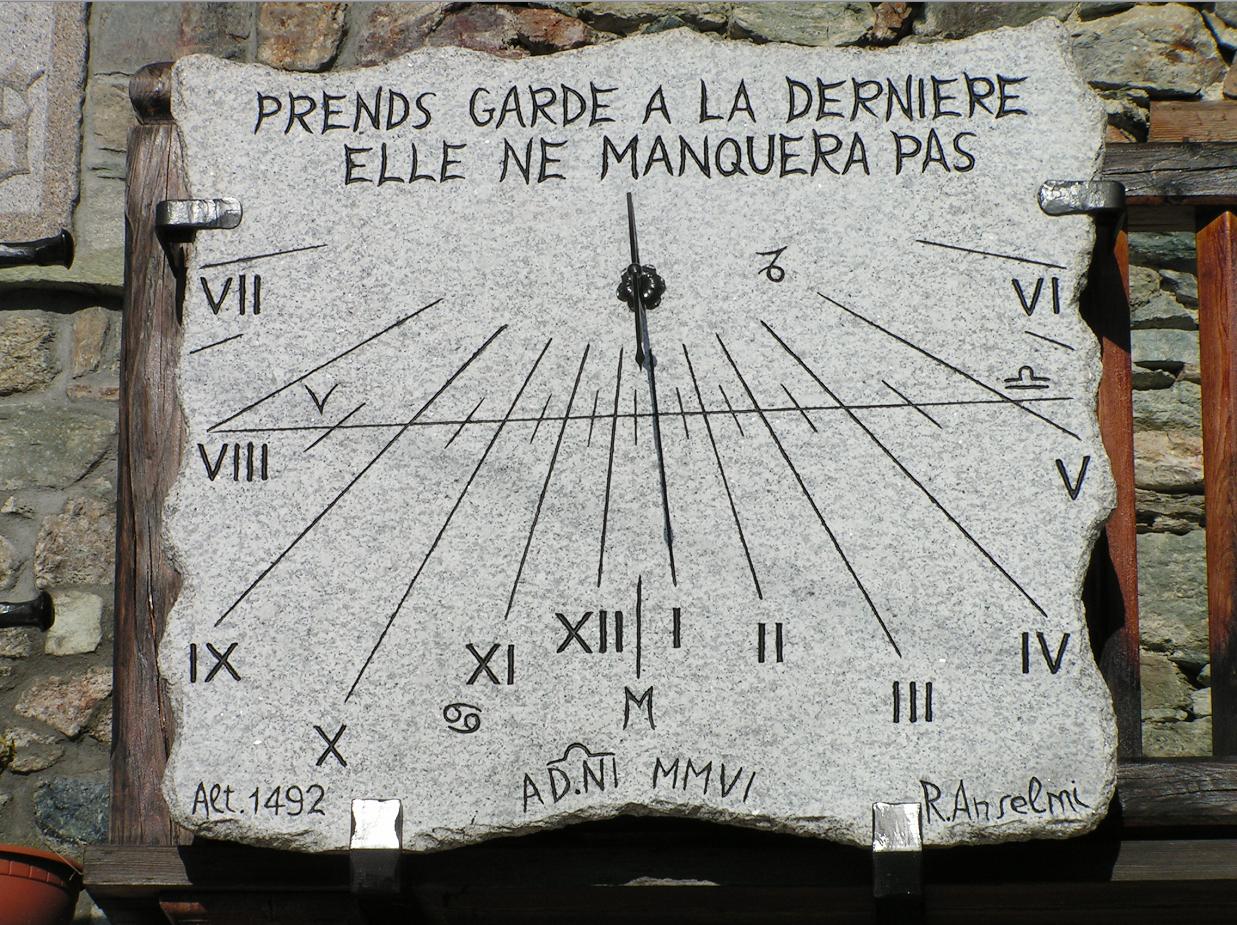 PRENDS GARDE A LA DERNIERE
ELLE NE MANQUERA PAS
♑
VII VI
♎
V
VIII V
XII I II
IX XI IV
III
♋ M
X
AD.NI MMVI
Alt.1492 R.Anselmi